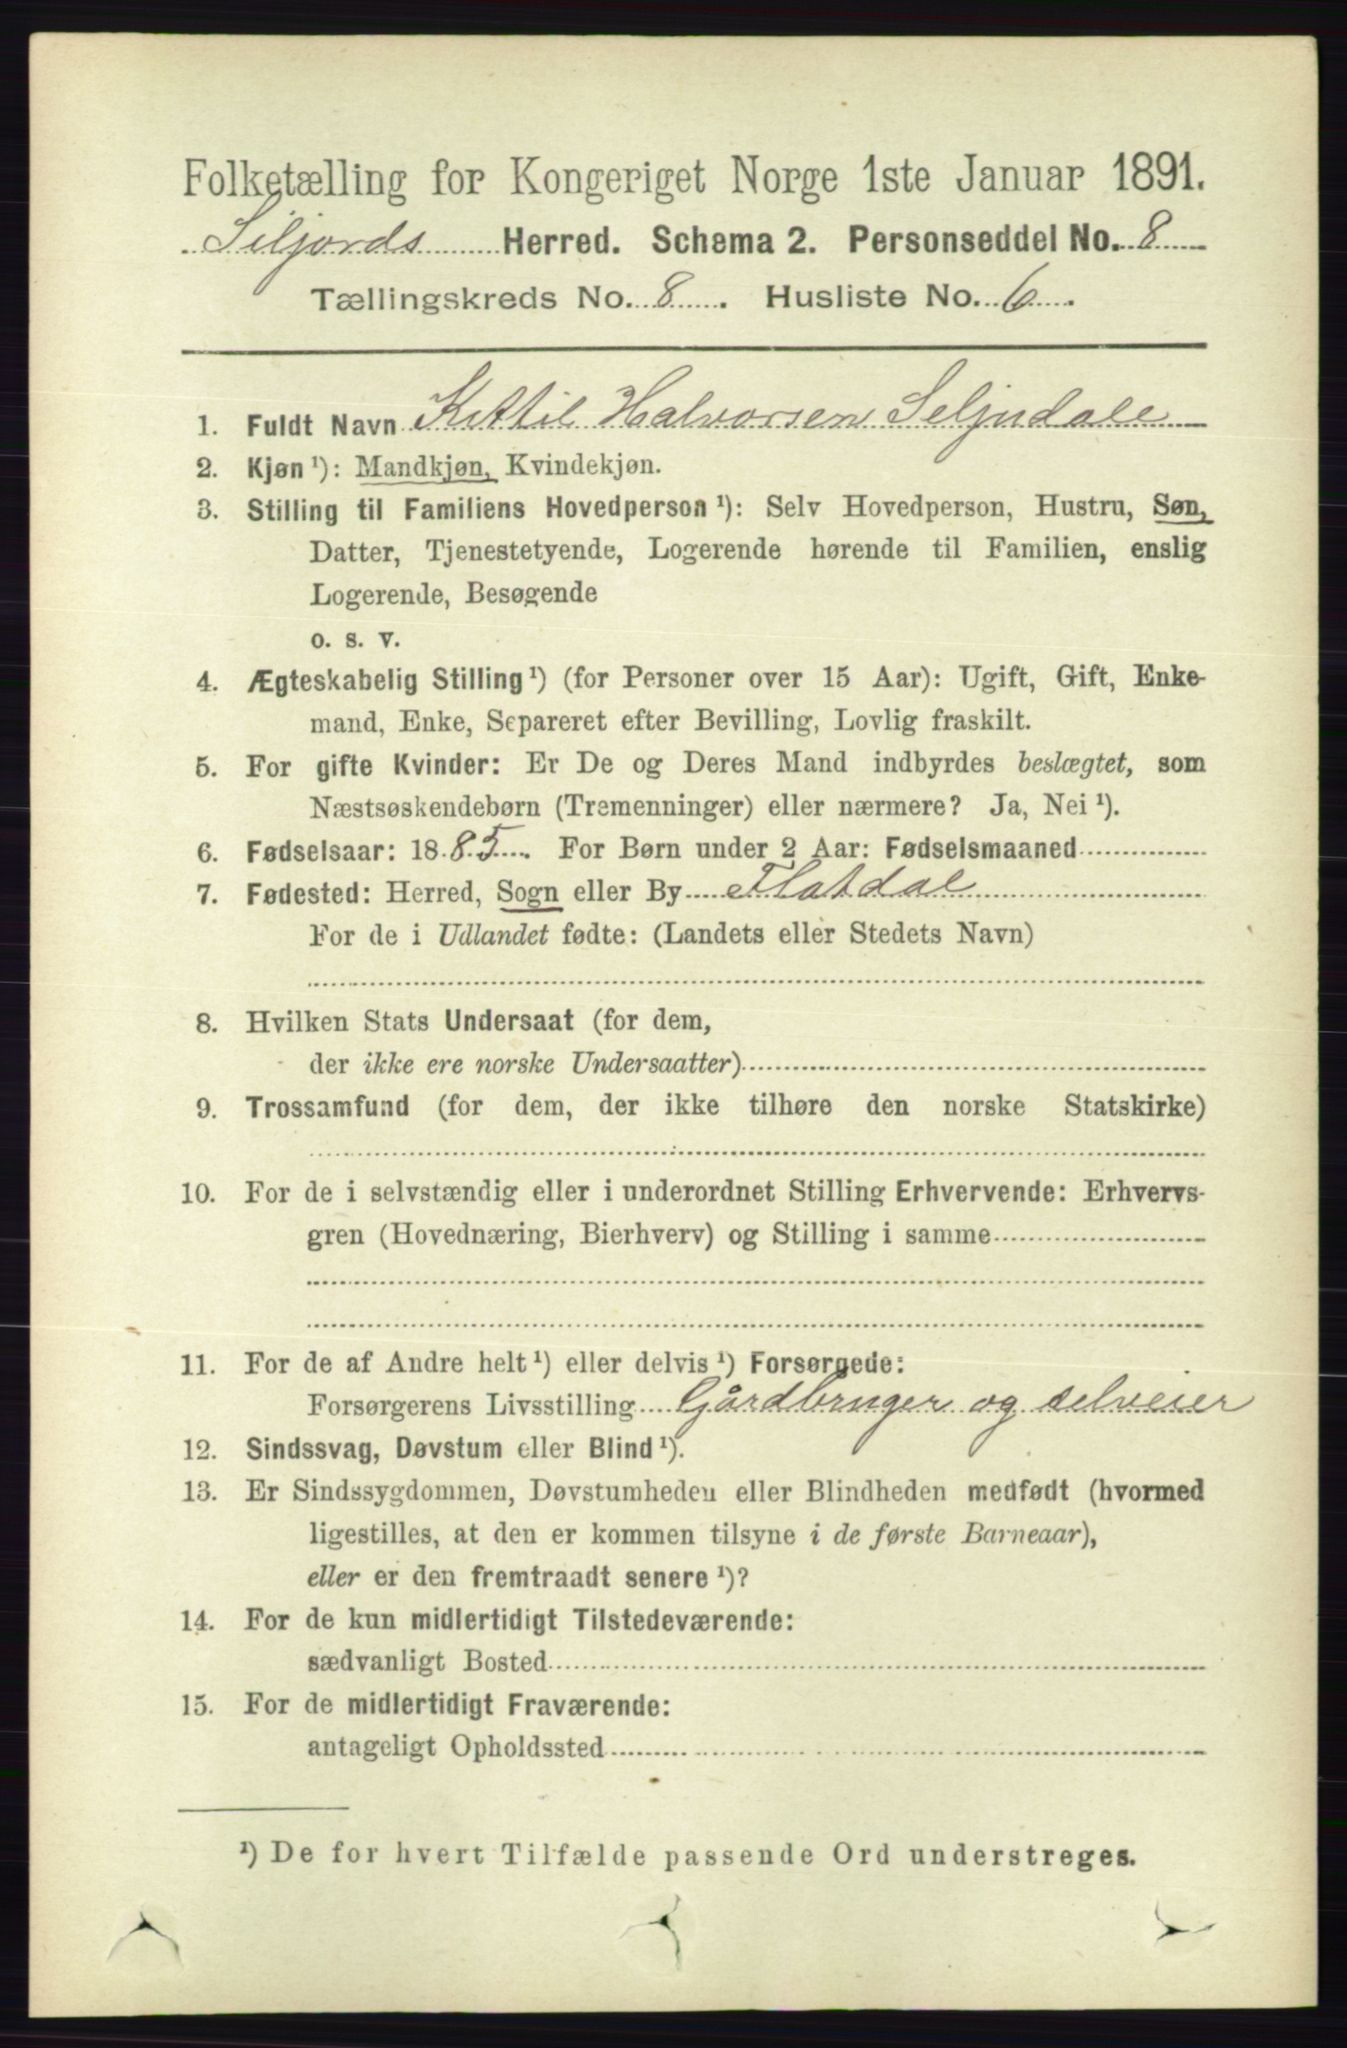 Folketælling for Kongeriget Norge 1ste Januar 1891.
Siljords Herred. Schema 2. Personseddel No. 8
Tællingskreds No. 8. Husliste No. 6.
1. Fuldt Navn Kittil Halvorsen Seljudale
2. Kjøn¹): Mandkjøn, Kvindekjøn.
3. Stilling til Familiens Hovedperson¹): Selv Hovedperson, Hustru, Søn,
Datter, Tjenestetyende, Logerende hørende til Familien, enslig
Logerende, Besøgende
o. s. v.
4. Ægteskabelig Stilling¹) (for Personer over 15 Aar): Ugift, Gift, Enke-
mand, Enke, Separeret efter Bevilling, Lovlig fraskilt.
5. For gifte Kvinder: Er De og Deres Mand indbyrdes beslægtet, som
Næstsøskendebørn (Tremenninger) eller nærmere? Ja, Nei¹).
6. Fødselsaar: 1885. For Børn under 2 Aar: Fødselsmaaned
7. Fødested: Herred, Sogn eller By Flatdal
For de i Udlandet fødte: (Landets eller Stedets Navn)
8. Hvilken Stats Undersaat (for dem,
der ikke ere norske Undersaatter)
9. Trossamfund (for dem, der ikke tilhøre den norske Statskirke)
10. For de i selvstændig eller i underordnet Stilling Erhvervende: Erhvervs-
gren (Hovednæring, Bierhverv) og Stilling i samme
11. For de af Andre helt¹) eller delvis¹) Forsørgede:
Forsørgerens Livsstilling Gårdbruger og selveier
12. Sindssvag, Døvstum eller Blind¹).
13. Er Sindssygdommen, Døvstumheden eller Blindheden medfødt (hvormed
ligestilles, at den er kommen tilsyne i de første Barneaar),
eller er den fremtraadt senere¹)?
14. For de kun midlertidigt Tilstedeværende:
sædvanligt Bosted
15. For de midlertidigt Fraværende:
antageligt Opholdssted
¹) De for hvert Tilfælde passende Ord understreges.